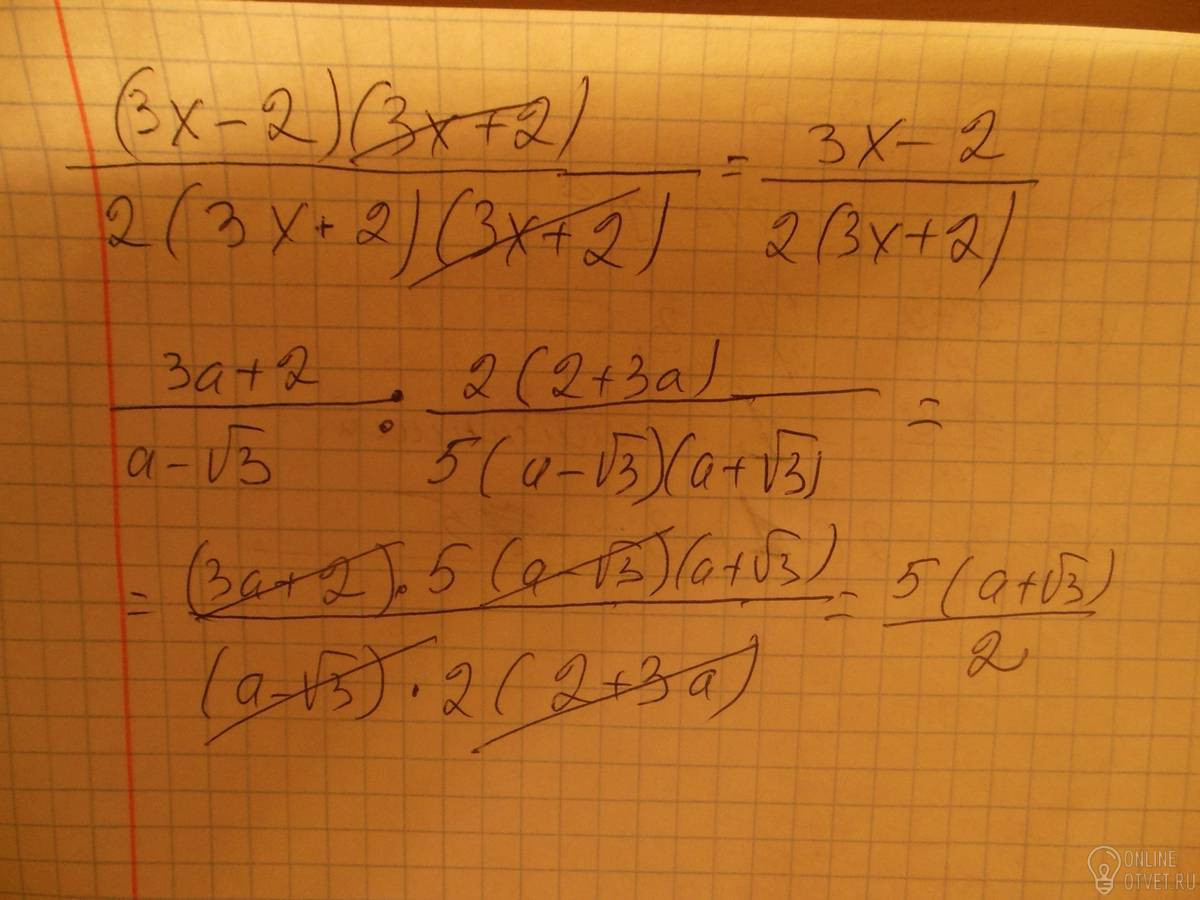 (3x-2)(3x+2) / 2(3x+2)(3x+2) = 3x-2 / 2(3x+2)
3a+2 / a-√3 : 2(2+3a) / 5(a-√3)(a+√3) =
= (3a+2)·5(a-√3)(a+√3) / (a-√3)·2(2+3a) = 5(a+√3) / 2
ONLINE
OTVET.RU